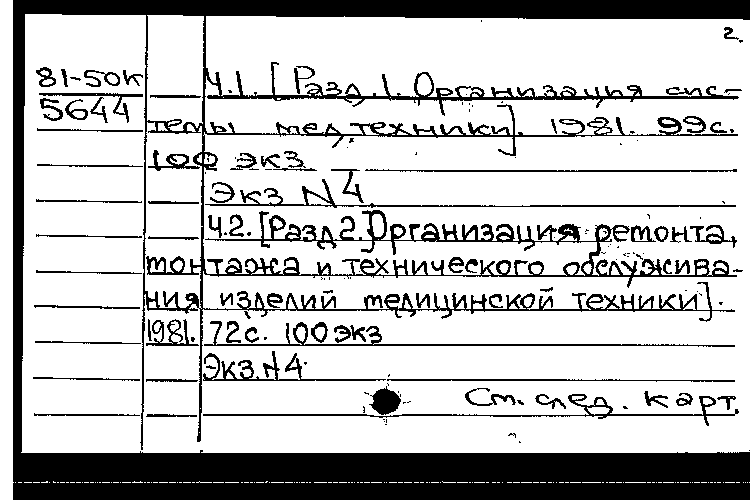 2.
81-50к Ч.1. [Разд.1. Организация сис-
5644 темы мед.техники]. 1981. 99с.
100 экз
Экз N4
Ч.2. [Разд2.]Организация ремонта,
монтажа и технического обслужива-
ния изделий медицинской техники].
1981. 72с. 100экз
Экз.N4.
См. след. карт.